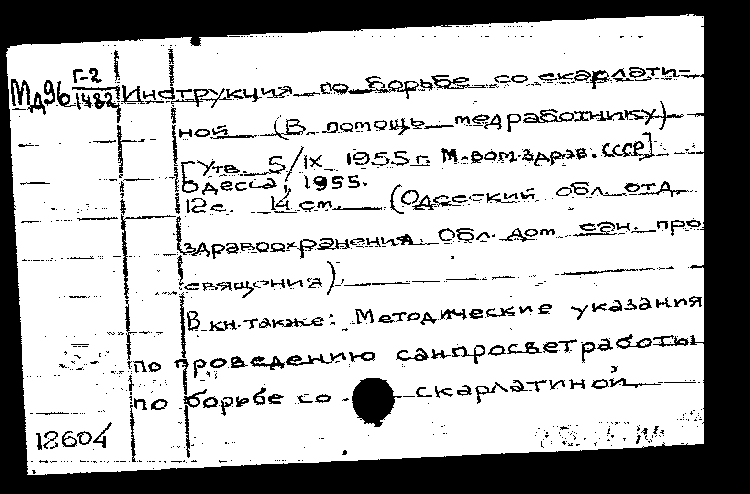 Мд96 Г-2/1482 Инструкция по борьбе со скарлати-
ной (В помощь медработнику)
[Утв. 5/IX 1955 г. М-вом здрав. СССР]
Одесса, 1955.
12 с. 14 см. (Одесский обл. отд.
здравоохранения. Обл. дом сан. про
священия).
В кн. также: Методические указания
по проведению санпросветработы
по борьбе со скарлатиной.
12604